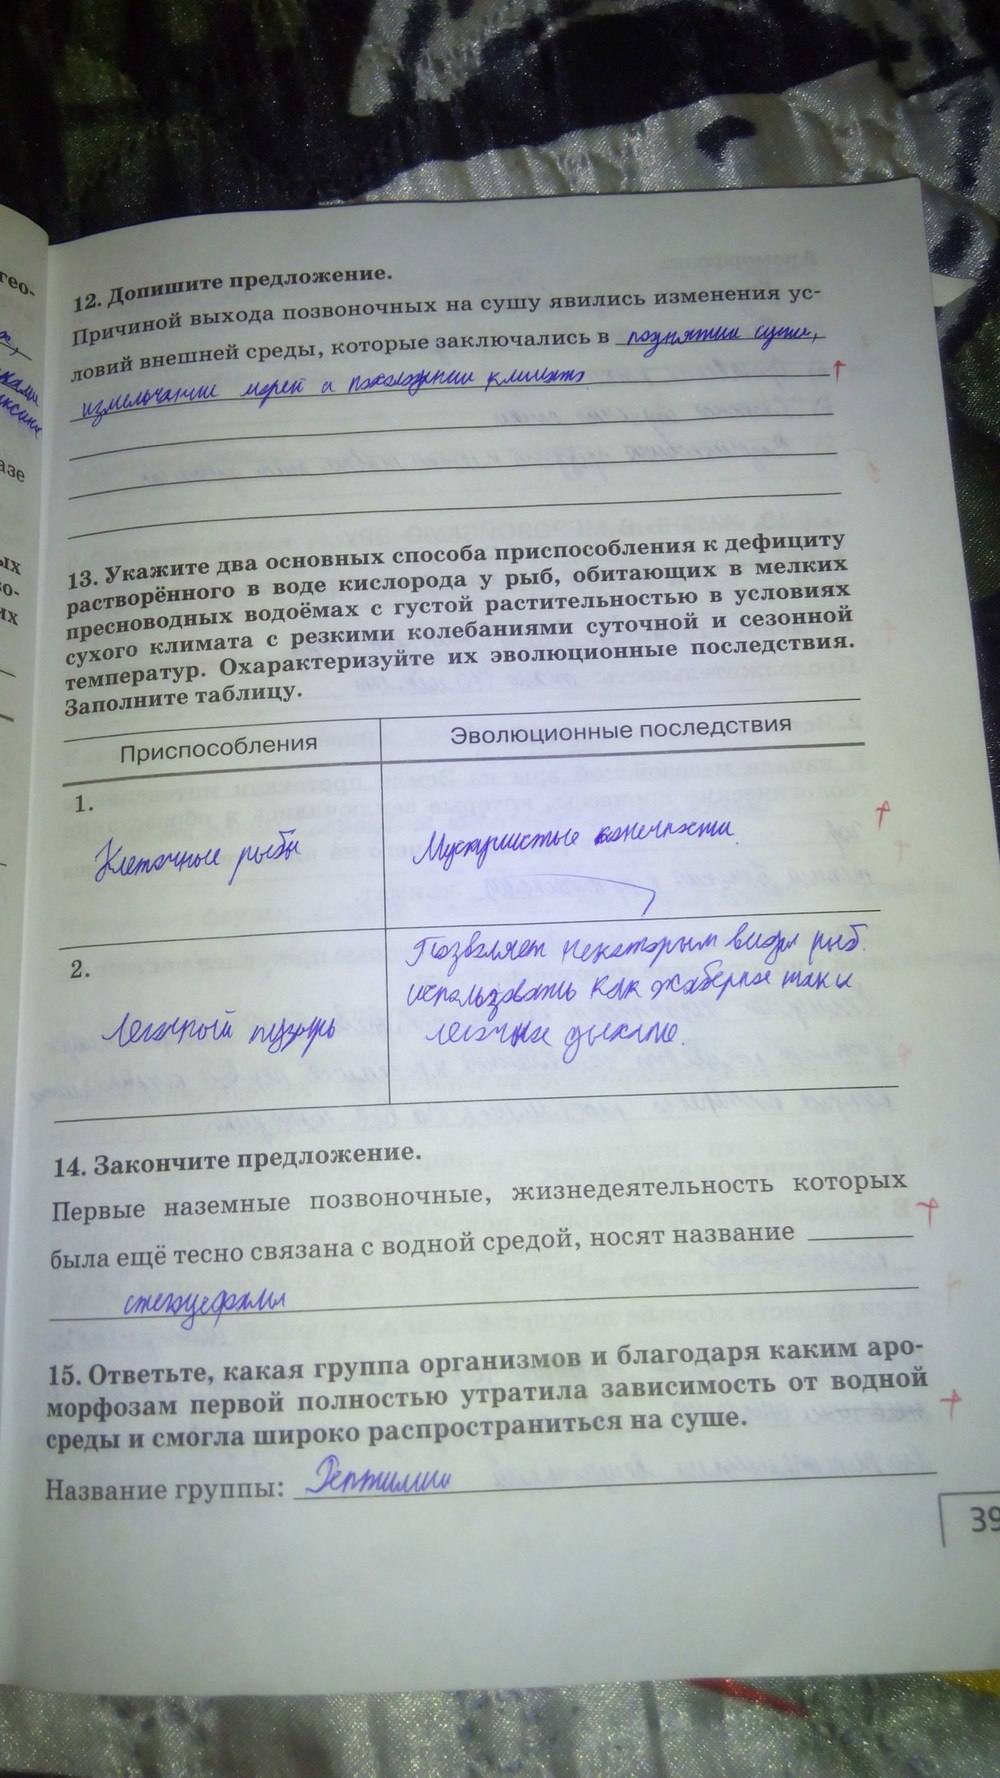 гео-
азе
ых
во-
их
12. Допишите предложение.
Причиной выхода позвоночных на сушу явились изменения ус-
ловий внешней среды, которые заключались в поднятии суши,
измельчании морей и похолодании климата
13. Укажите два основных способа приспособления к дефициту
растворённого в воде кислорода у рыб, обитающих в мелких
пресноводных водоёмах с густой растительностью в условиях
сухого климата с резкими колебаниями суточной и сезонной
температур. Охарактеризуйте их эволюционные последствия.
Заполните таблицу.
Приспособления Эволюционные последствия
1.
рыбы конечности
2.
Позволяет некоторым видам рыб
использовать как жаберное так и
легочное дыхание.
пузырь
14. Закончите предложение.
Первые наземные позвоночные, жизнедеятельность которых
была ещё тесно связана с водной средой, носят название
стегоцефалы
15. Ответьте, какая группа организмов и благодаря каким аро-
морфозам первой полностью утратила зависимость от водной
среды и смогла широко распространиться на суше.
Название группы: Рептилии
39